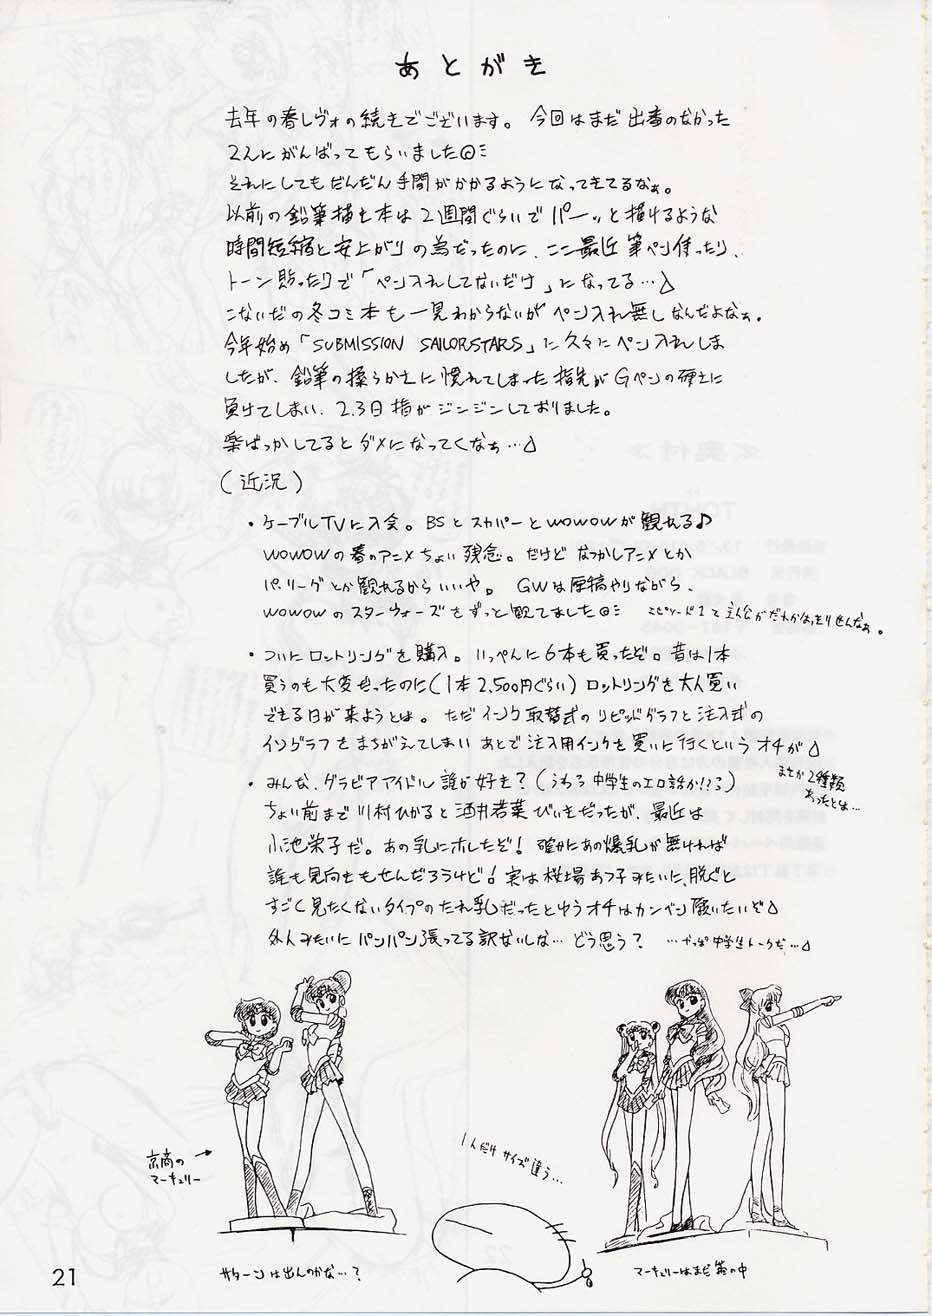 あとがき
去年の春レヴォの続きでございます。今回はまだ出番のなかった
2人にがんばってもらいました@ミ
それにしてもだんだん手間がかかるようになってきてるなぁ。
以前の鉛筆描き本は2週間ぐらいでパーッと描けるような
時間短縮と安上がりの為だったのに、ここ最近筆ペン使ったり、
トーン貼ったりで「ペン入れしてないだけ」になってる…△
こないだの冬コミ本も一見わからないがペン入れ無しなんだよなぁ。
今年始め「SUBMISSION SAILORSTARS」に久々にペン入れしま
したが、鉛筆の柔らかさに慣れてしまった指先がGペンの硬さに
負けてしまい、2.3日指がジンジンしておりました。
楽ばっかしてるとダメになってくなぁ…△
(近況)
・ケーブルTVに入会。BSとスカパーとWOWOWが観れる♪
WOWOWの春のアニメちょい残念。だけどなつかしアニメとか
パ・リーグとか観れるからいいや。GWは原稿やりながら、
WOWOWのスターウォーズをずっと観てました@ミ エピソード1て主人公がだれかはっきりせんなぁ。
・ついにロットリングを購入。いっぺんに6本も買ったぞ。昔は1本
買うのも大変だったのに(1本2,500円ぐらい)ロットリングを大人買い
できる日が来ようとは。ただインク取替式のリピッドグラフと注入式の
イソグラフをまちがえてしまいあとで注入用インクを買いに行くというオチが△
まさか2種類
あったとは…
・みんな、グラビアアイドル誰が好き?(うわっ中学生のエロ話か!?る)
ちょい前まで川村ひかると酒井若菜びいきだったが、最近は
小池栄子だ。あの乳にホレたぞ!確かにあの爆乳が無ければ
誰も見向きもせんだろうけど!実は桜場あつ子みたいに、脱ぐと
すごく見たくないタイプのたれ乳だったとゆうオチはカンベン願いたいぞ△
外人みたいにパンパン張ってる訳ないしな…どう思う? …やっぱ中学生トークだ…△
京商の
マーキュリー
1人だけサイズ違う…
サターンは出んのかな…?
マーキュリーはまだ箱の中
21